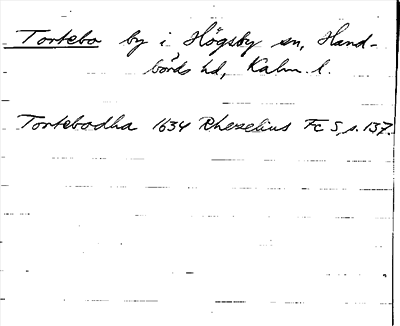 Tortebo by i Högsby sn, Hand-
börds hd, Kalm. l.
Tortebodha 1634 Rhezelius Fc 5, s. 137.